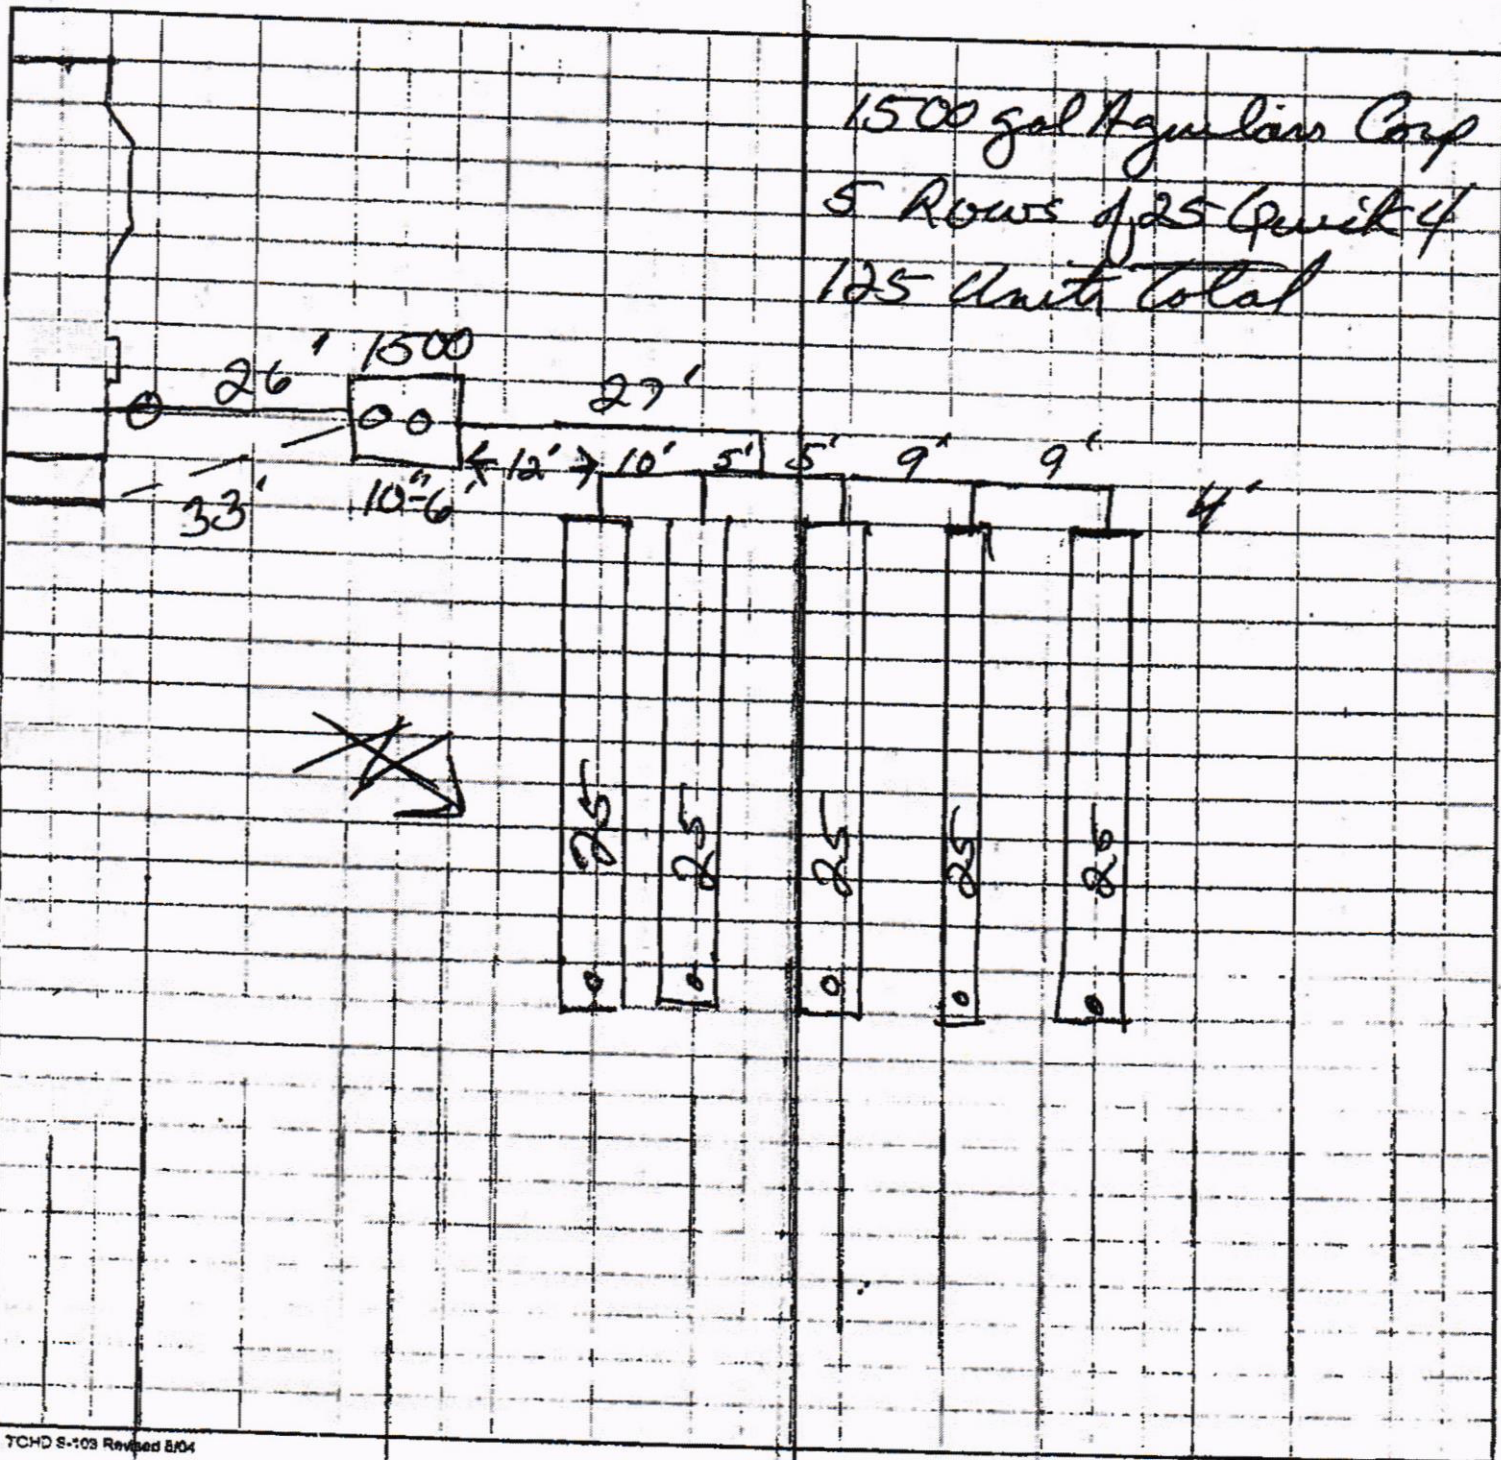 1500 gal Aguilars Corp
5 Rows of 25 Quik 4
125 Units Total
26' 1500
27'
12' 10' 5' 5' 9' 9'
33' 10"-6' 4'
25 25 25 25 25
TCHD S-103 Revised 8/04